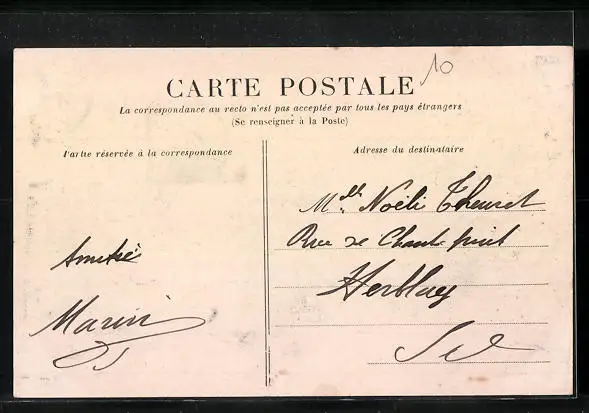 10
CARTE POSTALE
La correspondance au recto n'est pas acceptée par tous les pays étrangers
(Se renseigner à la Poste)
Partie réservée à la correspondance
Adresse du destinataire
Mlle Noëli Theuret
Rue de Chante
Herblay
Amitié